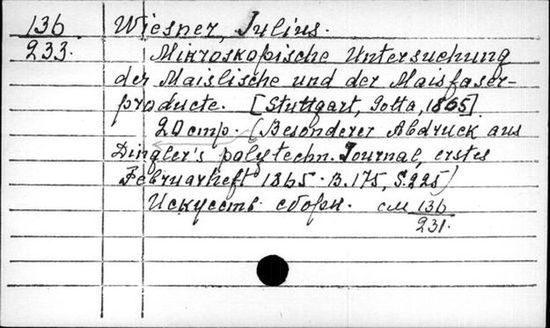 136 Wiesner, Julius.
233. Mikroskopische Untersuchung
der Maislische und der Maisfaser-
producte. [Stuttgart, Cotta, 1865]
20 стр. (Besonderer Abdruck aus
Dingler's polytechn. Journal, erstes
Februarheft 1865. B. 175, S. 225)
Искусств. сборн. см 136
231.